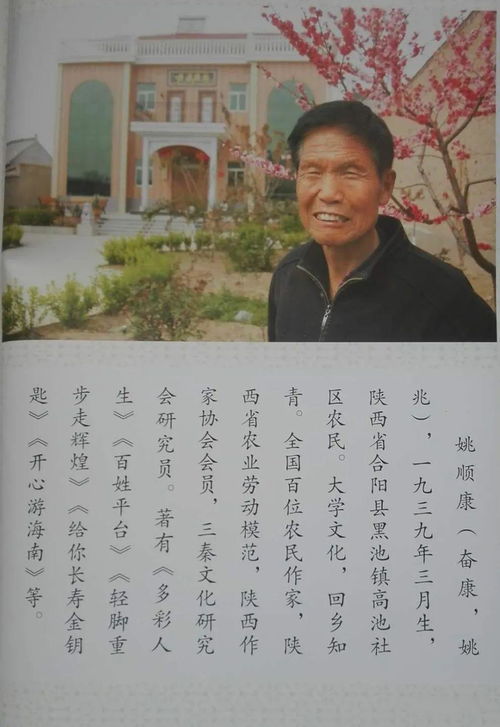 姚顺康（奋康，姚
兆），一九三九年三月生，
陕西省合阳县黑池镇高池社
区农民。大学文化，回乡知
青。全国百位农民作家，陕
西省农业劳动模范，陕西作
家协会会员，三秦文化研究
会研究员。著有《多彩人
生》《百姓平台》《轻脚重
步走辉煌》《给你长寿金钥
匙》《开心游海南》等。